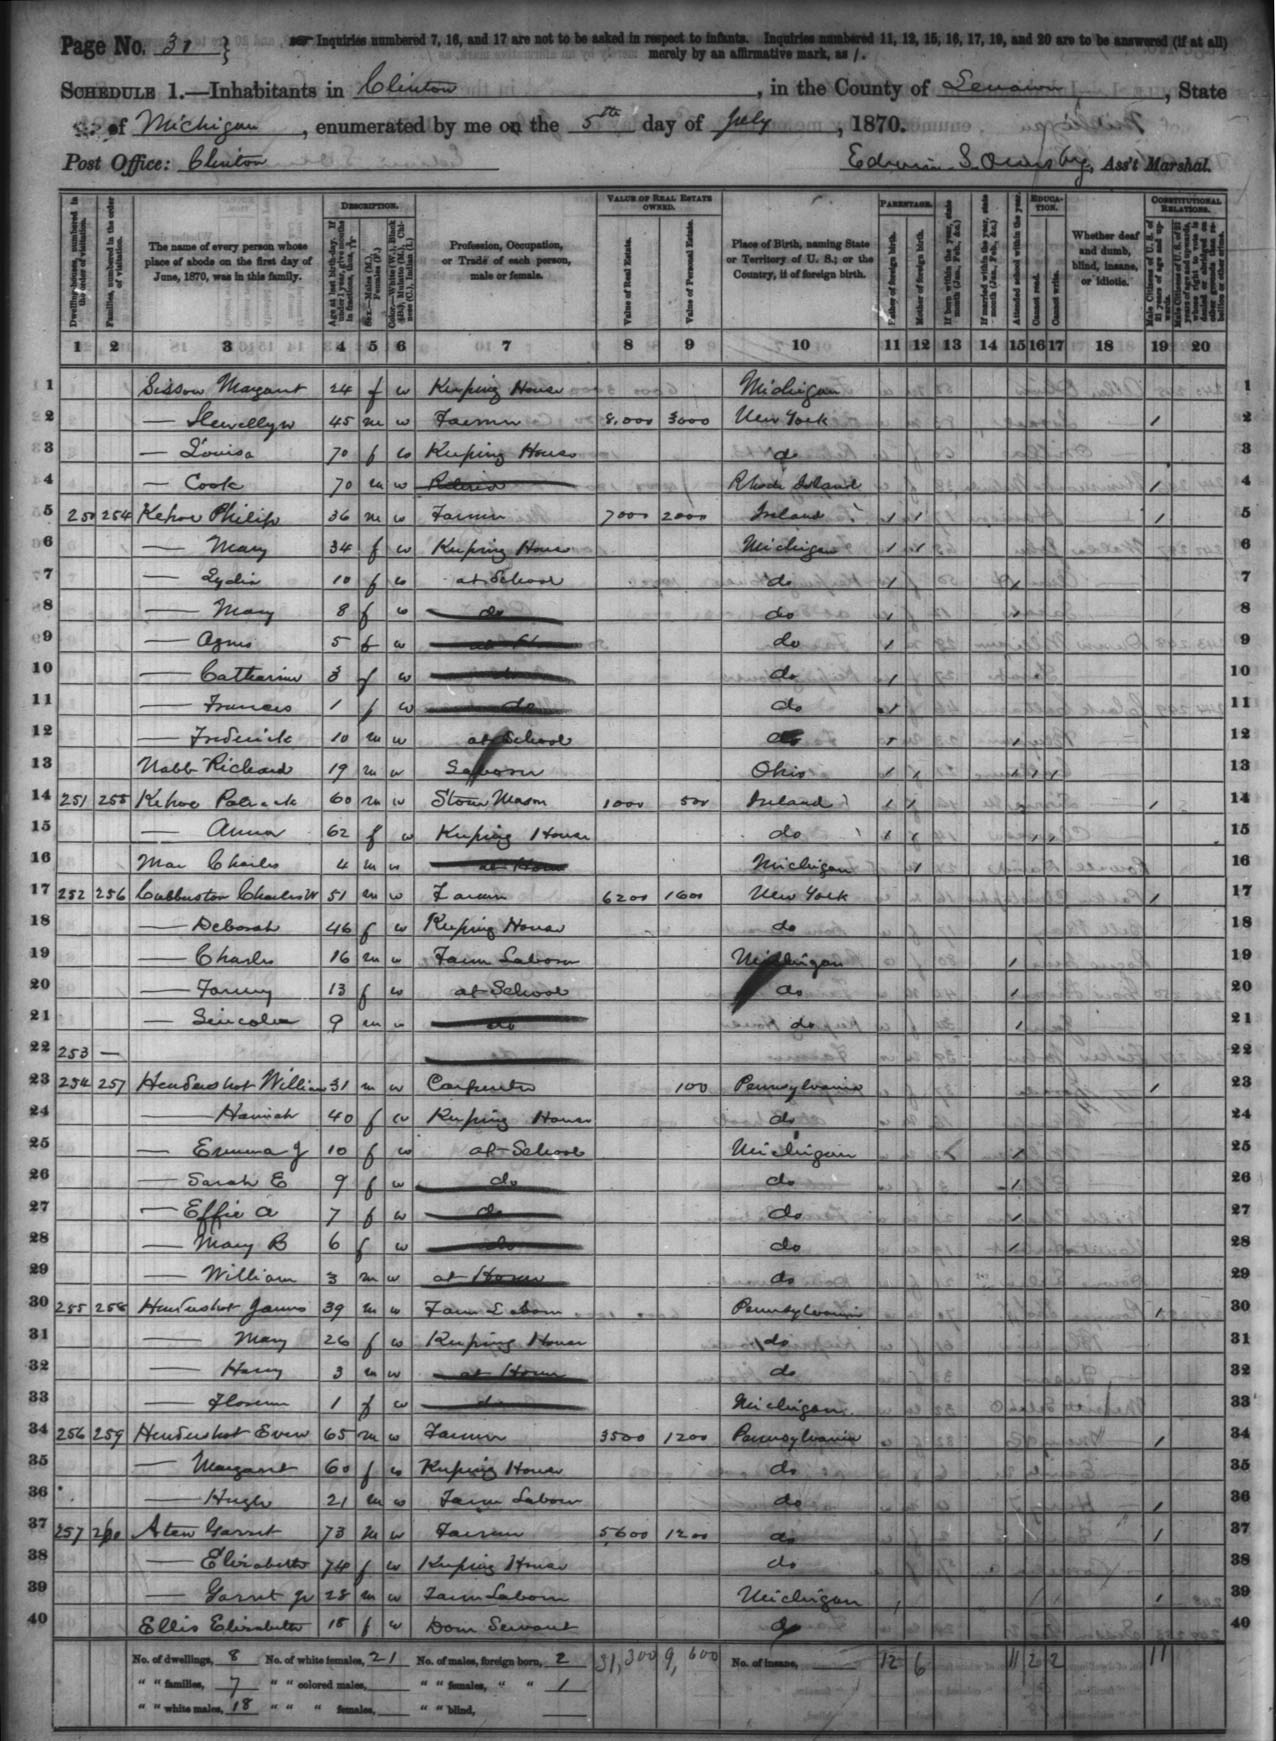 Page No. 31
Inquiries numbered 7, 16, and 17 are not to be asked in respect to infants. Inquiries numbered 11, 12, 15, 16, 17, 19, and 20 are to be answered (if at all)
merely by an affirmative mark, as /.
SCHEDULE 1.—Inhabitants in Clinton, in the County of Lenawee, State
of Michigan, enumerated by me on the 5th day of July, 1870.
Post Office: Clinton
Edwin S. Ormsby, Ass't Marshal.
DESCRIPTION. VALUE OF REAL ESTATE OWNED. PARENTAGE. EDUCATION. CONSTITUTIONAL RELATIONS.
Dwelling-houses, numbered in the order of visitation.
Families, numbered in the order of visitation.
The name of every person whose place of abode on the first day of June, 1870, was in this family.
Age at last birth-day. If under 1 year, give months in fractions, thus, 3/12
Sex.—Males (M.), Females (F.)
Color.—White (W.), Black (B.), Mulatto (M.), Chinese (C.), Indian (I.)
Profession, Occupation, or Trade of each person, male or female.
Value of Real Estate.
Value of Personal Estate.
Place of Birth, naming State or Territory of U. S.; or the Country, if of foreign birth.
Father of foreign birth.
Mother of foreign birth.
If born within the year, state month (Jan., Feb., &c.)
If married within the year, state month (Jan., Feb., &c.)
Attended school within the year.
Cannot read.
Cannot write.
Whether deaf and dumb, blind, insane, or idiotic.
Male Citizens of U. S. of 21 years of age and upwards.
1 2 3 4 5 6 7 8 9 10 11 12 13 14 15 16 17 18 19 20
1 Sisson Margaret 24 f w Keeping House Michigan 1
2 — Llewellyn 45 m w Farmer 8,000 3000 New York / 2
3 — Louisa 70 f w Keeping House do 3
4 — Cook 70 m w Retired Rhode Island / 4
5 250 254 Kehoe Philip 36 m w Farmer 7000 2000 Ireland / / / 5
6 — Mary 34 f w Keeping House Michigan / / 6
7 — Lydia 10 f w at School do / / 7
8 — Mary 8 f w do do / / 8
9 — Agnes 5 f w at Home do / 9
10 — Catharine 3 f w do / 10
11 — Frances 1 f w do do / 11
12 — Frederick 10 m w at School do / / 12
13 Nabb Richard 19 m w Laborer Ohio / / / / / 13
14 251 255 Kehoe Patrick 60 m w Stone Mason 1000 500 Ireland / / / 14
15 — Anna 62 f w Keeping House do / / / / 15
16 Charles 4 m w at Home Michigan / 16
17 252 256 Charles W 51 m w Farmer 6200 1600 New York / 17
18 — Deborah 46 f w Keeping House do 18
19 — Charles 16 m w Farm Laborer Michigan / 19
20 — Fanny 13 f w at School do / 20
21 — Lincoln 9 m w do do / 21
22 253 — do 22
23 254 257 Hendershot William 31 m w Carpenter 100 Pennsylvania / 23
24 — Hannah 40 f w Keeping House do 24
25 — Emma J 10 f w at School Michigan / 25
26 — Sarah E 9 f w do do / 26
27 — Effie A 7 f w do do / 27
28 — Mary B 6 f w do do / 28
29 — William 3 m w at Home do 29
30 255 258 Hendershot James 39 m w Farm Laborer Pennsylvania / 30
31 — Mary 26 f w Keeping House do 31
32 — Henry 3 m w at Home do 32
33 — Florence 1 f w do Michigan 33
34 256 259 Hendershot Even 65 m w Farmer 3500 1200 Pennsylvania / 34
35 — Margaret 60 f w Keeping House do 35
36 — Hugh 21 m w Farm Laborer do / 36
37 257 260 Aten Garret 73 m w Farmer 5600 1200 do / 37
38 — Elizabeth 74 f w Keeping House do 38
39 — Garret Jr 28 m w Farm Laborer Michigan / / 39
40 Ellis Elizabeth 18 f w Dom Servant do 40
No. of dwellings, 8 No. of white females, 21 No. of males, foreign born, 2 31,300 9,600 No. of insane, 12 6 11 2 2 11
" " families, 7 " " colored males, " " females, " " 1
" " white males, 18 " " " females, " " blind,